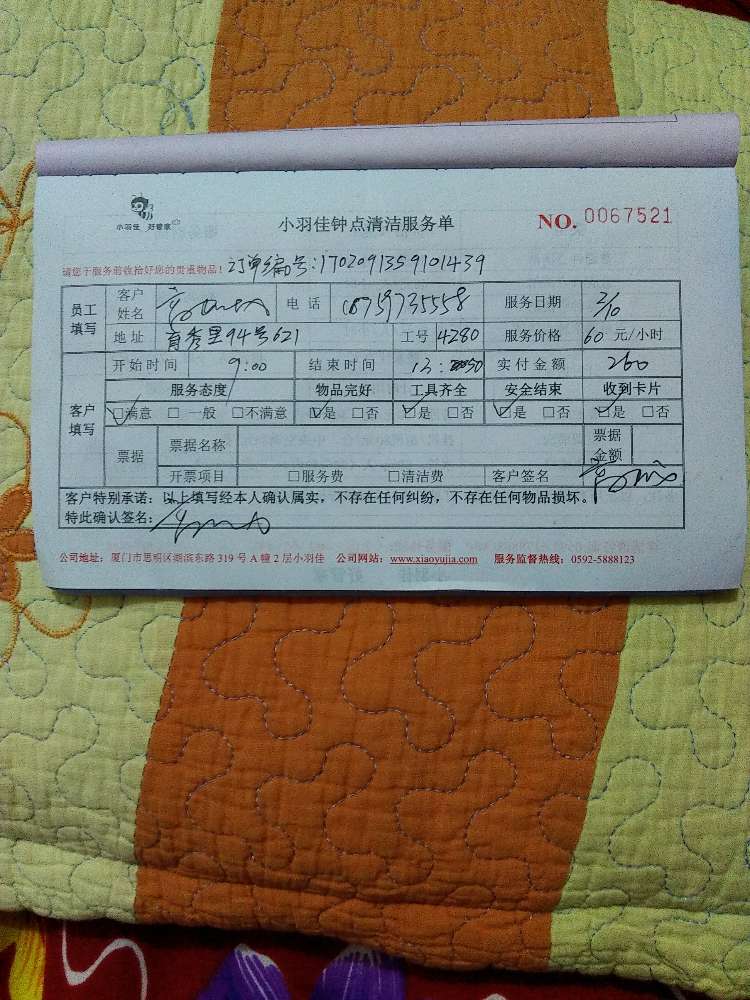 小羽佳 好管家
小羽佳钟点清洁服务单
NO. 0067521
请您于服务前收拾好您的贵重物品！ 订单编号:1702091359101439
员工填写 客户姓名 电话 18759735558 服务日期 2/10
地址 育秀里94号621 工号 4280 服务价格 60 元/小时
客户填写 开始时间 9:00 结束时间 13: 实付金额 260
服务态度 物品完好 工具齐全 安全结束 收到卡片
☑满意 □ 一般 □不满意 ☑是 □否 ☑是 □否 ☑是 □否 ☑是 □否
票据 票据名称 票据金额
开票项目 □服务费 □清洁费 客户签名
客户特别承诺：以上填写经本人确认属实，不存在任何纠纷，不存在任何物品损坏。
特此确认签名：
公司地址：厦门市思明区湖滨东路 319 号 A 幢 2 层小羽佳 公司网站：www.xiaoyujia.com 服务监督热线：0592-5888123